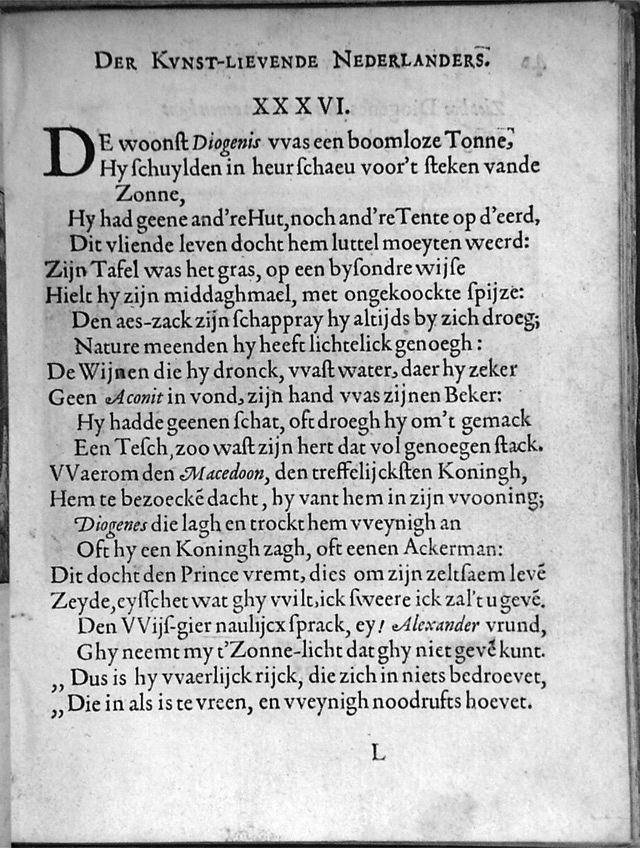 DER KVNST-LIEVENDE NEDERLANDERS.
XXXVI.
DE woonſt Diogenis vvas een boomloze Tonne,
Hy ſchuylden in heur ſchaeu voor't ſteken vande
Zonne,
Hy had geene and're Hut, noch and're Tente op d'eerd,
Dit vliende leven docht hem luttel moeyten weerd:
Zijn Tafel was het gras, op een byſondre wijſe
Hielt hy zijn middaghmael, met ongekoockte ſpijze:
Den aes-zack zijn ſchappray hy altijds by zich droeg;
Nature meenden hy heeft lichtelick genoegh:
De Wijnen die hy dronck, vvaſt water, daer hy zeker
Geen Aconit in vond, zijn hand vvas zijnen Beker:
Hy hadde geenen ſchat, oft droegh hy om't gemack
Een Teſch, zoo waſt zijn hert dat vol genoegen ſtack.
VVaerom den Macedoon, den treffelijckſten Koningh,
Hem te bezoeckē dacht, hy vant hem in zijn vvooning;
Diogenes die lagh en trockt hem vveynigh an
Oft hy een Koningh zagh, oft eenen Ackerman:
Dit docht den Prince vremt, dies om zijn zeltſaem levē
Zeyde, eyſſchet wat ghy vvilt, ick ſweere ick zal't u gevē.
Den VVijſ-gier naulijcx ſprack, ey! Alexander vrund,
Ghy neemt my t'Zonne-licht dat ghy niet gevē kunt.
„ Dus is hy vvaerlijck rijck, die zich in niets bedroevet,
„ Die in als is te vreen, en vveynigh noodrufts hoevet.
L